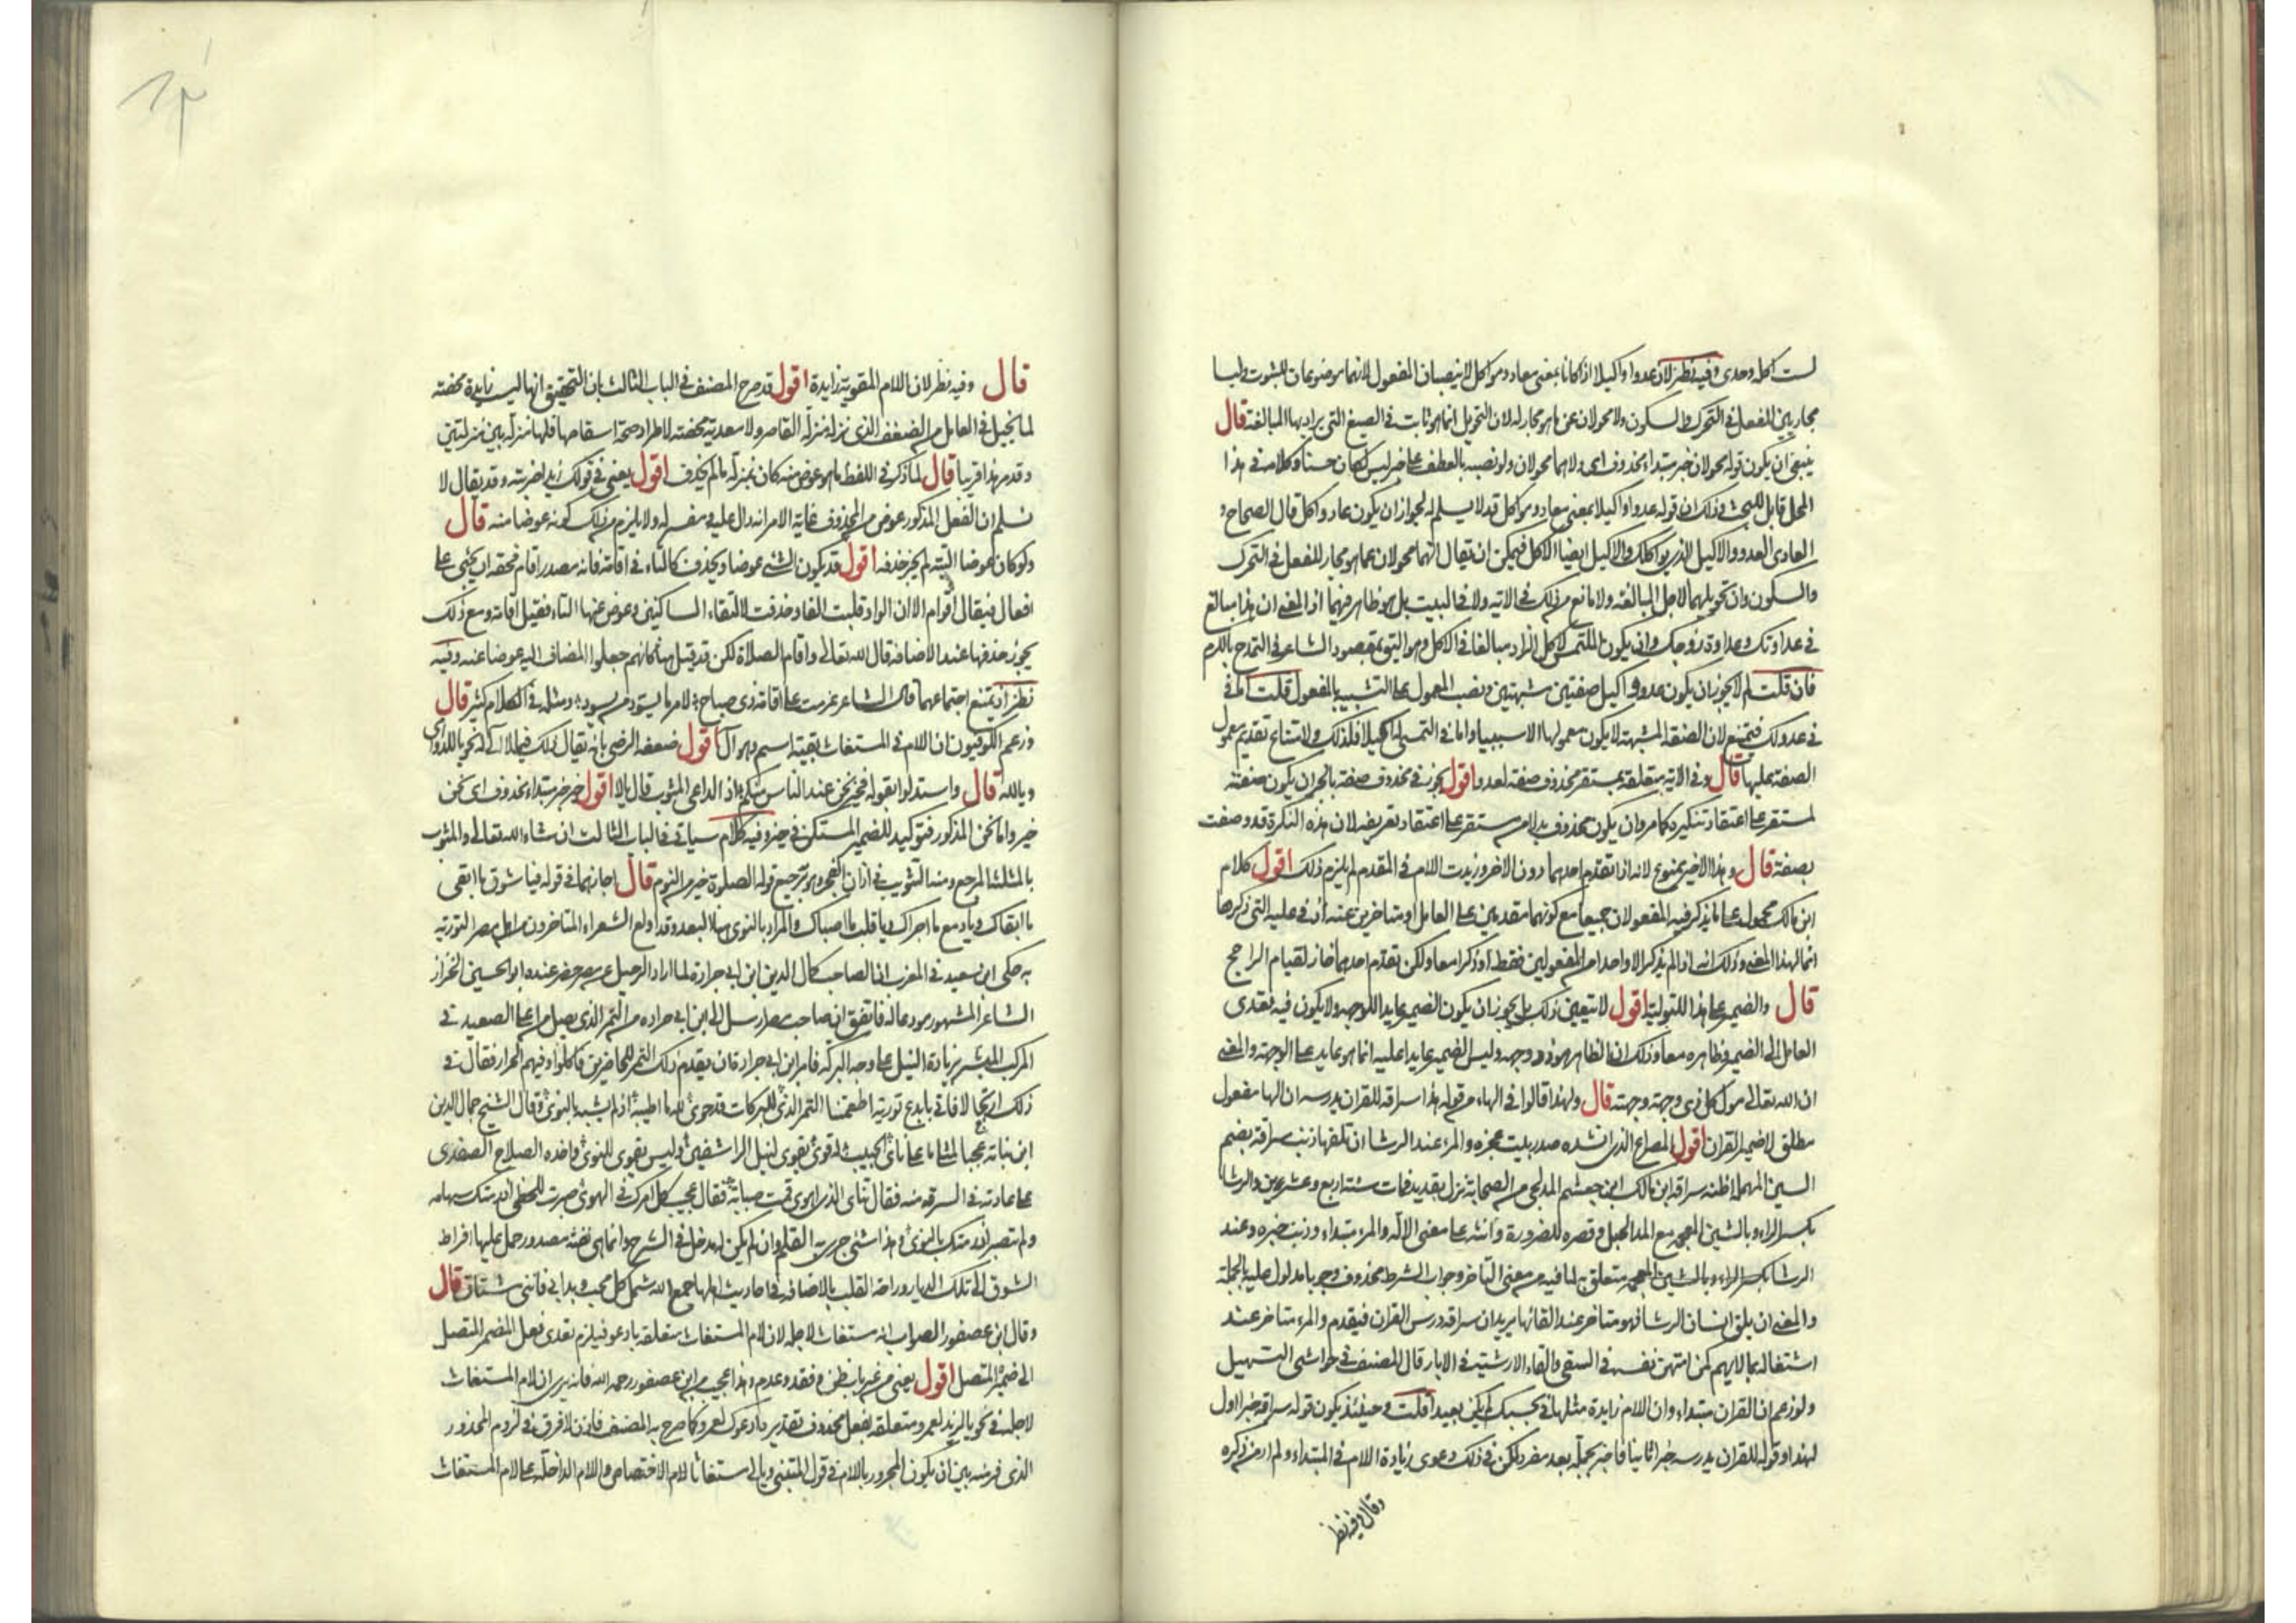 لست اكله وحدى وفيه نظر لان عدوا واكيلا اذا كانا بمعنى معاد ومواكل لا ينصبان المفعول لانهما موضوعان للثبوت وليسا
مجاريين للفعل في التحرك والسكون ولا محولان عن ما هو مجار له لان التحويل انما هو ثابت في الصيغ التي يراد بها المبالغة قال
ينبغى ان يكون قوله محولان خبر مبتداء محذوف اى ولا هما محولان ولو نصبه بالعطف على خبر ليس لكان حسنا وكلامه في هذا
المحل قابل للبحث وذلك ان قوله عدوا واكيلا بمعنى معاد ومواكل قد لا يسلم له لجواز ان يكون عاد واكل قال الصحاح و
العادى العدو والاكيل الذى يواكلك والاكيل ايضا الاكل فيمكن ان يقال انهما محولان عما هو مجار للفعل في التحرك
والسكون وان تحويلهما لاجل المبالغة ولا مانع من ذلك في الاية ولا في البيت بل هو ظاهر فيهما اذ المعنى ان هذا مبالغ
في عداوتك وعداوة زوجك وان يكون الملتمس لاكل الزاد مبالغا في الاكل وهو اليق بمقصود الشاعر في التمدح بالكرم
فان قلت لم لا يجوز ان يكون عدو واكيل صفتين مشبهتين ونصب المعمول على التشبيه بالمفعول قلت اما في
في عدو لك فيمتنع لان الصفة المشبهة لا يكون معمولها الا سببيا واما في التمسى له اكيلا فلذلك ولامتناع تقديم معمول
الصفة عليها قال وفي الاية متعلقة بمستقر محذوف صفة لعدو اقول يجوز في محذوف صفة بالجر ان يكون صفة
لمستقر على اعتقاد تنكيره كما مر وان يكون محذوف بدلا من مستقر على اعتقاد تعريفه لان هذه النكرة قد وصفت
بصفة قال وهذا الاخير ممنوع لانه اذا تقدم احدهما دون الاخر وزيدت اللام في المقدم لم يلزم ذلك اقول كلام
ابن مالك محمول على ما يذكر فيه المفعولان جميعا مع كونهما مقدمين على العامل او متاخرين عنه اذ في عليه التى ذكرها
انما لهذا المعنى وذلك انه اذا لم يذكر الا واحد من المفعولين فقط او ذكرا معا ولكن تقدم احدهما جاز لقيام الراجح
قال والضمير على هذا للتولية اقول لا يتعين ذلك بل يجوز ان يكون الضمير عايدا للوجه ولا يكون فيه تعدى
العامل الى الضمير وظاهره معا وذلك ان الظاهر هو ذو وجهه وليس الضمير عايدا عليه انما هو عايد على الوجهة والمعنى
ان الله تعالى مول كل ذى وجهة وجهته قال ولهذا قالوا في الهاء من قوله هذا سراقة للقران يدرسه ان الها مفعول
مطلق لا ضمير القران اقول المصراع الذى انشده صدر بيت عجزه والمرء عند الرشا ان تلقها ذئب سراقة بضم
السين المهملة اظنه سراقة ابن مالك ابن جعشم المدلجى من الصحابة نزل بقديد فمات سنة اربع وعشرين والرشا
بكسر الراء وبالشين المعجمة مع المد الحبل وقصره للضرورة وانثه على معنى الآلة والمرء مبتداء وذئب خبره وعند
الرشا بكسر الراء وبالشين المعجمة متعلق به لما فيه من معنى التاخر وجواب الشرط محذوف وجوبا مدلول عليه بالجملة
والمعنى ان يلق انسان الرشا فهو متاخر عند القائها يريد ان سراقة درس القران فيقدم والمرء متاخر عند
اشتغاله بما لا يهم كمن امتهن نفسه في السقى والقاء الارشية في الابار قال المصنف في حواشى التسهيل
ولو زعم ان القران مبتداء وان اللام زايدة مثلها في بحسبك لم يكن بعيدا قلت وحينئذ يكون قوله سراقة خبرا اول
لهذا وقوله للقران يدرسه خبرا ثانيا فاخبر بجملة بعد مفرد لكن في ذلك دعوى زيادة اللام في المبتداء ولم ار من ذكره
وقال وفيه نظر
قال وفيه نظر لان اللام المقوية زايدة اقول قد صرح المصنف في الباب الثالث بان التحقيق انها ليست زايدة محضة
لما تخيل في العامل من الضعف الذى نزله منزلة القاصر ولا معدية محضة لاطراد صحة اسقاطها فلها منزلة بين منزلتين
وقد مر هذا قريبا قال لما ذكر في اللفظ ما هو عوض منه كان بمنزلة ما لم يحذف اقول يعنى في قولك زيدا ضربته وقد يقال لا
نسلم ان الفعل المذكور عوض من المحذوف غاية الامر انه دال عليه ومفسر له ولا يلزم من ذلك كونه عوضا منه قال
ولو كان عوضا البتة لم يجز حذفه اقول قد يكون الشئ عوضا ويحذف كالتاء في اقامة فانه مصدر اقام فحقه ان يجئ على
افعال فيقال اقوام الا ان الواو قلبت الفا وحذفت لالتقاء الساكنين وعوض عنها التاء فقيل اقامة ومع ذلك
يجوز حذفها عند الاضافة قال الله تعالى واقام الصلاة لكن قد قيل هنا كانهم جعلوا المضاف اليه عوضا عنه وفيه
نظر اذ يمتنع اجتماعهما قال الشاعر عزمت على اقامة ذى صباح لامر ما يسود من يسود ومثله في الكلام كثير قال
وزعم الكوفيون ان اللام في المستغاث بقية اسم وهو ال اقول ضعفه الرضى بانه يقال ذلك فيما لا ال له نحو يا للدواهى
ويا لله قال واستدلوا بقوله فخير نحن عند الناس منكم اذ الداعى المثوب قال يالا اقول خير خبر مبتداء محذوف اى نحن
خير واما نحن المذكور فتوكيد للضمير المستكن في خير وفيه كلام سياتى في الباب الثالث ان شاء الله تعالى والمثوب
بالمثلثة المرجع ومنه التثويب في اذان الفجر وهو ترجيع قوله الصلوة خير من النوم قال اجازهما في قوله فيا شوق ما ابقى
ما ابقاك ويا دمع ما اجراك ويا قلب ما اصباك والمراد بالنوى هنا البعد وقد اولع الشعراء المتاخرون من اهل مصر التورية
به حكى ابن سعيد في المغرب ان الصاحب كمال الدين ابن ابى جرادة لما اراد الرحيل عن مصر حضر عنده ابو الحسين الخزاز
الشاعر المشهور مودعا له فاتفق ان صاحب مصر ارسل الى ابن ابى جراده من التمر الذى يصل من اعلا الصعيد في
المركب المبشر بزيادة النيل على وجه البركة فامر ابن ابى جرادة ان يقدم ذلك التمر للحاضرين فاكلوا وفيهم الجزار فقال في
ذلك ارتجالا فاتى بابدع تورية اطعمتنا التمر الذى للبركات قد حوى لله ما اطيبه اذ لم يشبه بالنوى وقال الشيخ جمال الدين
ابن نباته عجبا على ناى الحبيب قوى تقوى لنبل الراشقين وليس تقوى للنوى واخذه الصلاح الصفدى
على عادته في السرقة منه فقال تناى الذى اهوى فمت صبابة فقال عجيب كل امرك في الهوى صبرت للحظى اذ رمتك سهامه
ولم تصبر اذ رمتك بالنوى وهذا شئ جرى به القلم وان لم يكن له مدخل في الشرح وانما هى نفثة مصدور حمل عليها افراط
الشوق الى تلك الديار وراحة القلب بالاضافة في احاديث اهلها جمع الله شمل كل محب وبدا بى فاننى مشتاق قال
وقال ابن عصفور الصواب انه مستغاث لاجله لان لام المستغاث متعلقة بادعو فيلزم تعدى فعل المضمر المتصل
الى ضميره المتصل اقول يعنى من غير باب ظن وفقد وعدم وهذا عجيب من ابن عصفور رحمه الله فانه يرى ان لام المستغاث
لاجله في نحو يا لزيد لعمرو متعلقة بفعل محذوف تقديره ادعوك لعمرو كما صرح به المصنف فاذن لا فرق في لزوم المحذور
الذى فر منه بين ان يكون المجرور باللام في قول المتنبى ويالى مستغاثا لام الاختصاص واللام الداخلة على لام المستغاث